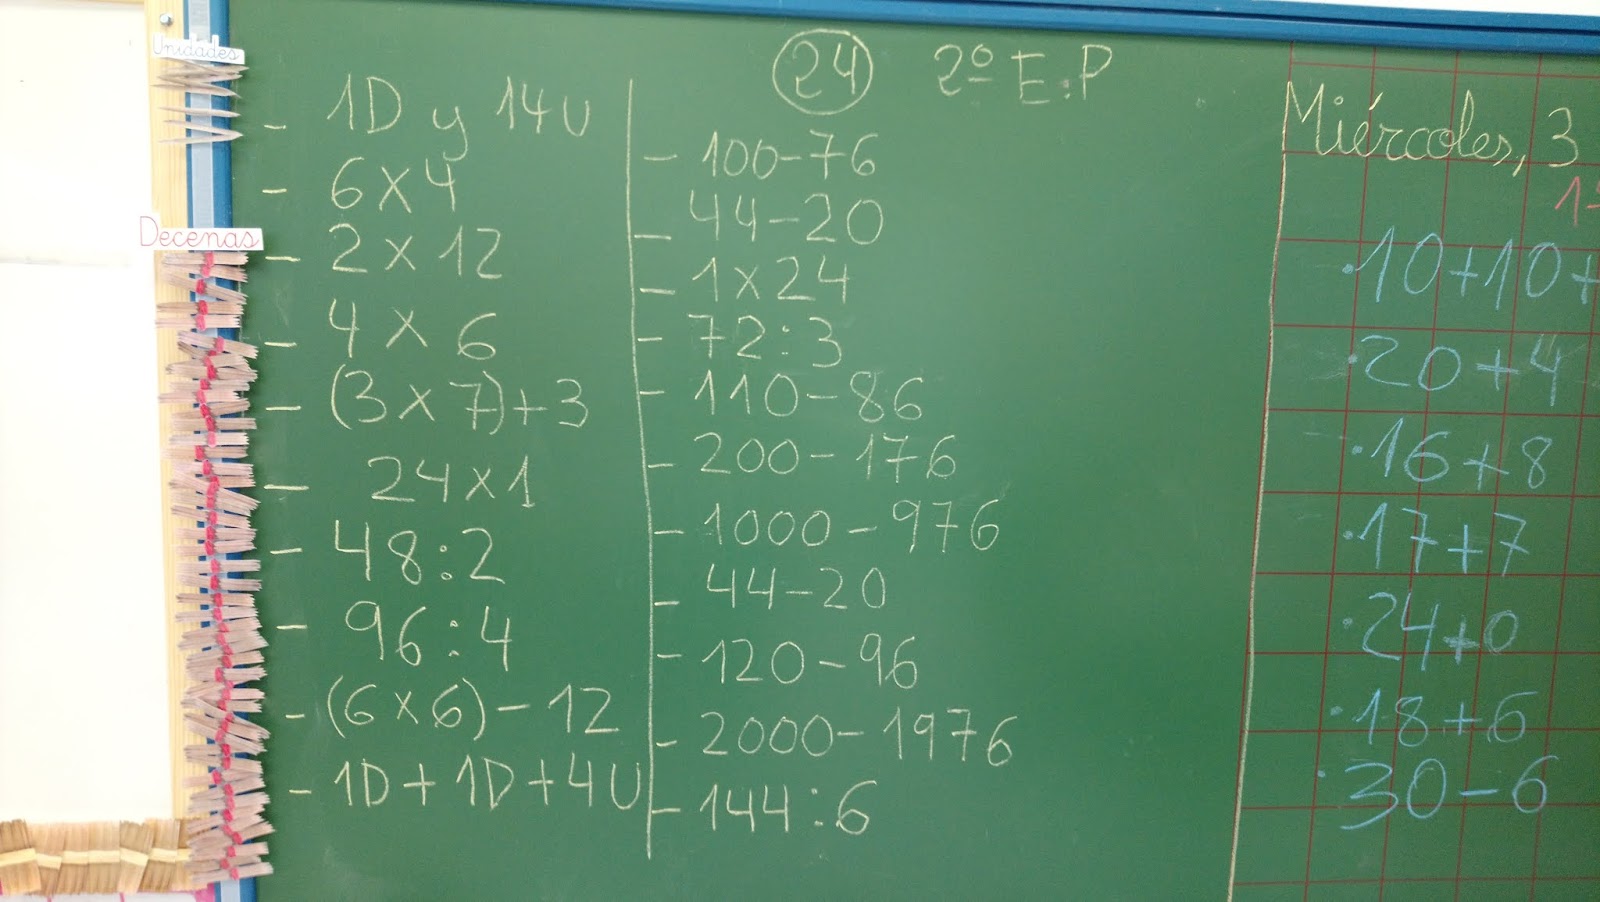 Unidades
Decenas
24 2º E.P
- 1D y 14U
- 6 x 4
- 2 x 12
- 4 x 6
- (3 x 7) + 3
- 24 x 1
- 48:2
- 96:4
- (6 x 6) - 12
- 1D + 1D + 4U
- 100 - 76
- 44 - 20
- 1 x 24
- 72:3
- 110 - 86
- 200 - 176
- 1000 - 976
- 44 - 20
- 120 - 96
- 2000 - 1976
- 144:6
Miércoles, 3
1-
·10+10+
·20+4
·16+8
·17+7
·24+0
·18+6
·30-6